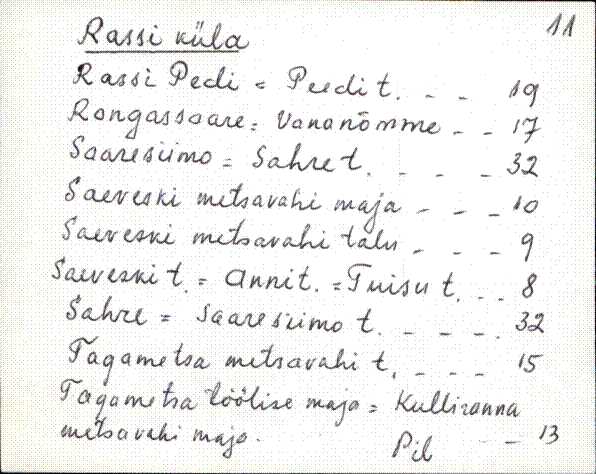 11
Rassi küla
Rassi Pedi = Peedi t. - - 19
Rongassaare = Vananõmme - - 17
Saaresiimo = Sahre t. - - - 32
Saeveski metsavahi maja - - - 10
Saeveski metsavahi talu - - - 9
Saeveski t. = Anni t. = Tuisu t. - - 8
Sahre = Saaresiimo t. - - - - 32
Tagametsa metsavahi t. - - - 15
Tagametsa töölise maja = Kulliranna
metsavahi maja. - - 13
Pil